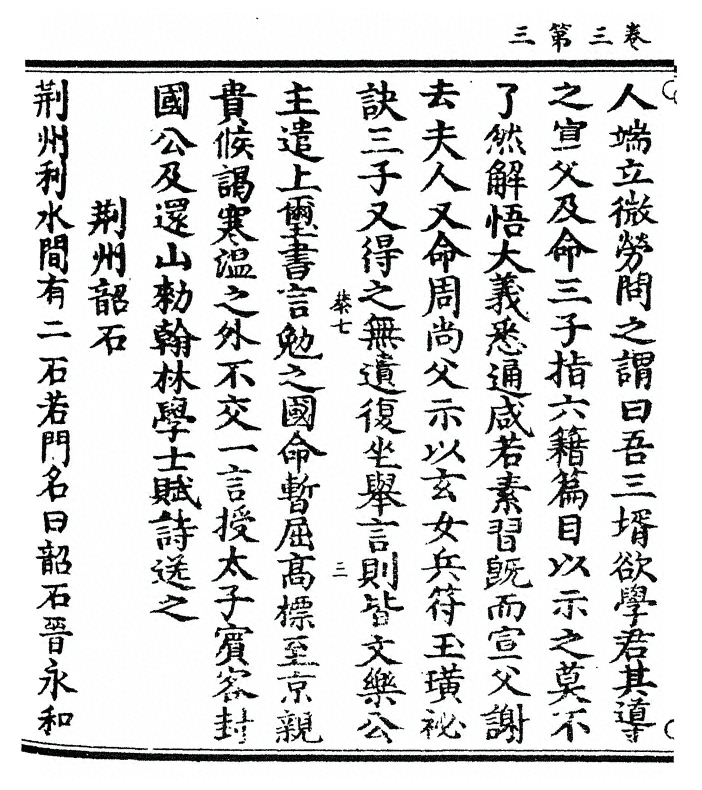 卷三第三
人端立微勞問之謂曰吾三壻欲學君其導
之宣父及命三子指六籍篇目以示之莫不
了然解悟大義悉通咸若素習旣而宣父謝
去夫人又命周尚父示以玄女兵符玉璜祕
訣三子又得之無遺復坐舉言則皆文樂公
棊七
三
主遣上璽書言勉之國命暫屈高標至京親
貴候謁寒溫之外不交一言授太子賓客封
國公及還山勑翰林學士賦詩送之
荆州韶石
荆州利水間有二石若門名曰韶石晉永和